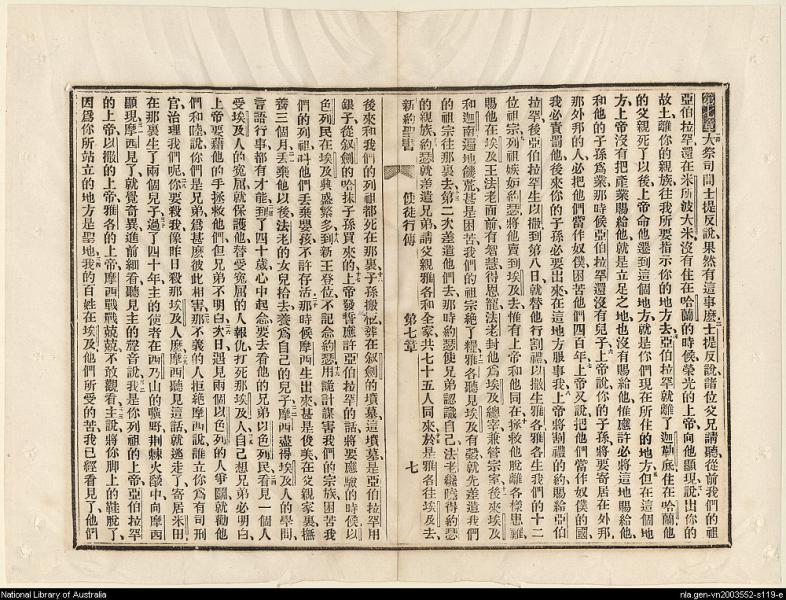 第七章大祭司問士提反說果然有這事麽士提反說諸位父兄請聽從前我們的祖
亞伯拉罕還在米所波大米沒有住在哈蘭的時候榮光的上帝向他顯現說出你的
故土離你的親族往我所要指示你的地方去亞伯拉罕就離了迦勒底住在哈蘭他
的父親死了以後上帝命他遷到這個地方就是你們現在所住的地方但在這個地
方上帝沒有把產業賜給他就是立足之地也沒有賜給他惟應許必將這地賜給他
和他的子孫爲業那時候亞伯拉罕還沒有兒子上帝說你的子孫將要寄居在外邦
那外邦的人必把他們當作奴僕困苦他們四百年上帝又說把他們當作奴僕的國
我必責罰他後來你的子孫必要出來在這地方服事我上帝將割禮的約賜給亞伯
拉罕後亞伯拉罕生以撒到第八日就替他行割禮以撒生雅各雅各生我們的十二
位祖宗列祖嫉妬約瑟將他賣到埃及去惟有上帝和他同在拯救他脫離各樣患難
賜他在埃及王法老面前有智慧得恩寵法老封他爲埃及總宰兼管家後來埃及
和迦南遍地饑荒甚是困苦我們的祖宗絕了糧雅各聽見埃及有穀就先差遣我們
的祖宗往那裏去第二次差遣他們去那時約瑟使兄弟認識自己法老纔曉得約瑟
的親族約瑟就差遣兄弟請父親雅各和全家共七十五人同來於是雅各往埃及去
新約聖書 使徒行傳 第七章 七
後來和我們的列祖都死在那裏子孫搬他葬在敘劍的墳墓這墳墓是亞伯拉罕用
銀子從敘劍的哈抹子孫買來的上帝發誓應許亞伯拉罕的話將要應驗的時候以
色列民在埃及興盛繁多到新王登位不記念約瑟用詭計謀害我們的宗族困苦我
們的列祖叫他們丟棄嬰孩不許存活那時候摩西生出來甚是俊美在父親家裏撫
養三個月丟棄他以後法老的女兒拾去養爲自己的兒子摩西盡得埃及人的學問
言語行事都有才能到了四十歲心中起念要去看他的兄弟以色列民看見一個人
受埃及人的冤屈就保護他替受冤屈的人報仇打死那埃及人自己想兄弟必明白
上帝要藉他的手拯救他們但兄弟不明白次日遇見兩個以色列的人爭鬭就勸他
們和睦說你們是兄弟爲甚麽彼此相害那不義的人拒絕摩西說誰立你爲有司刑
官治理我們呢你要殺我像昨日殺那埃及人麽摩西聽見這話就逃走了寄居米田
在那裏生了兩個兒子過了四十年主的使者在西乃山的曠野荆棘火燄中向摩西
顯現摩西見了就覺奇異進前細看聽見主的聲音說我是你列祖的上帝亞伯拉罕
的上帝以撒的上帝雅各的上帝摩西戰戰兢兢不敢觀看主說將你脚上的鞋脫了
因爲你所站立的地方是聖地我的百姓在埃及他們所受的苦我已經看見了他們
National Library of Australia
nla.gen-vn2003552-s119-e